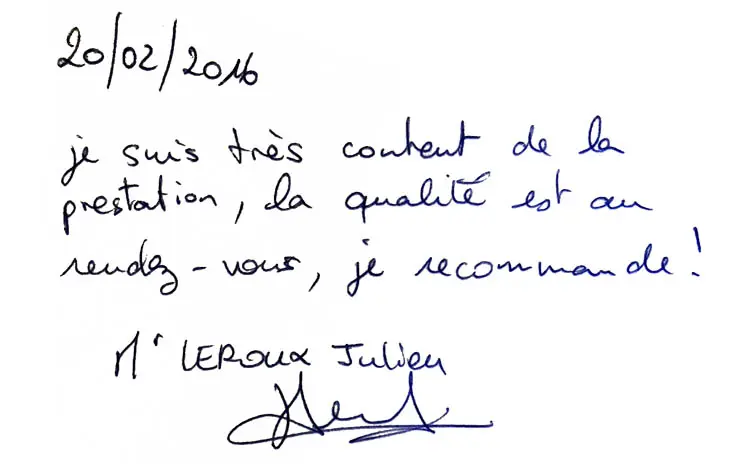 20/02/2016
je suis très content de la
prestation, la qualité est au
rendez-vous, je recommande!
Mr LEROUX Julien